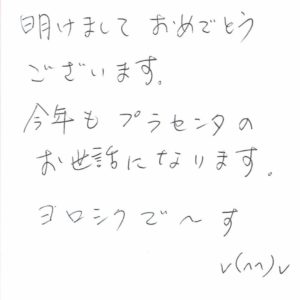 明けまして おめでとう
ございます。
今年も プラセンタの
お世話になります。
ヨロシクで〜す
v(^^)v